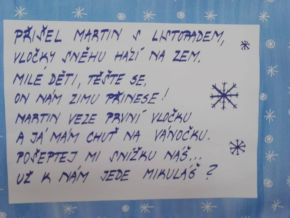 PŘIŠEL MARTIN S LISTOPADEM,
VLOČKY SNĚHU HÁZÍ NA ZEM.
MILÉ DĚTI, TĚŠTE SE,
ON NÁM ZIMU PŘINESE!
MARTIN VEZE PRVNÍ VLOČKU
A JÁ MÁM CHUŤ NA VÁNOČKU.
POŠEPTEJ MI SNÍŽKU NÁŠ...
UŽ K NÁM JEDE MIKULÁŠ?